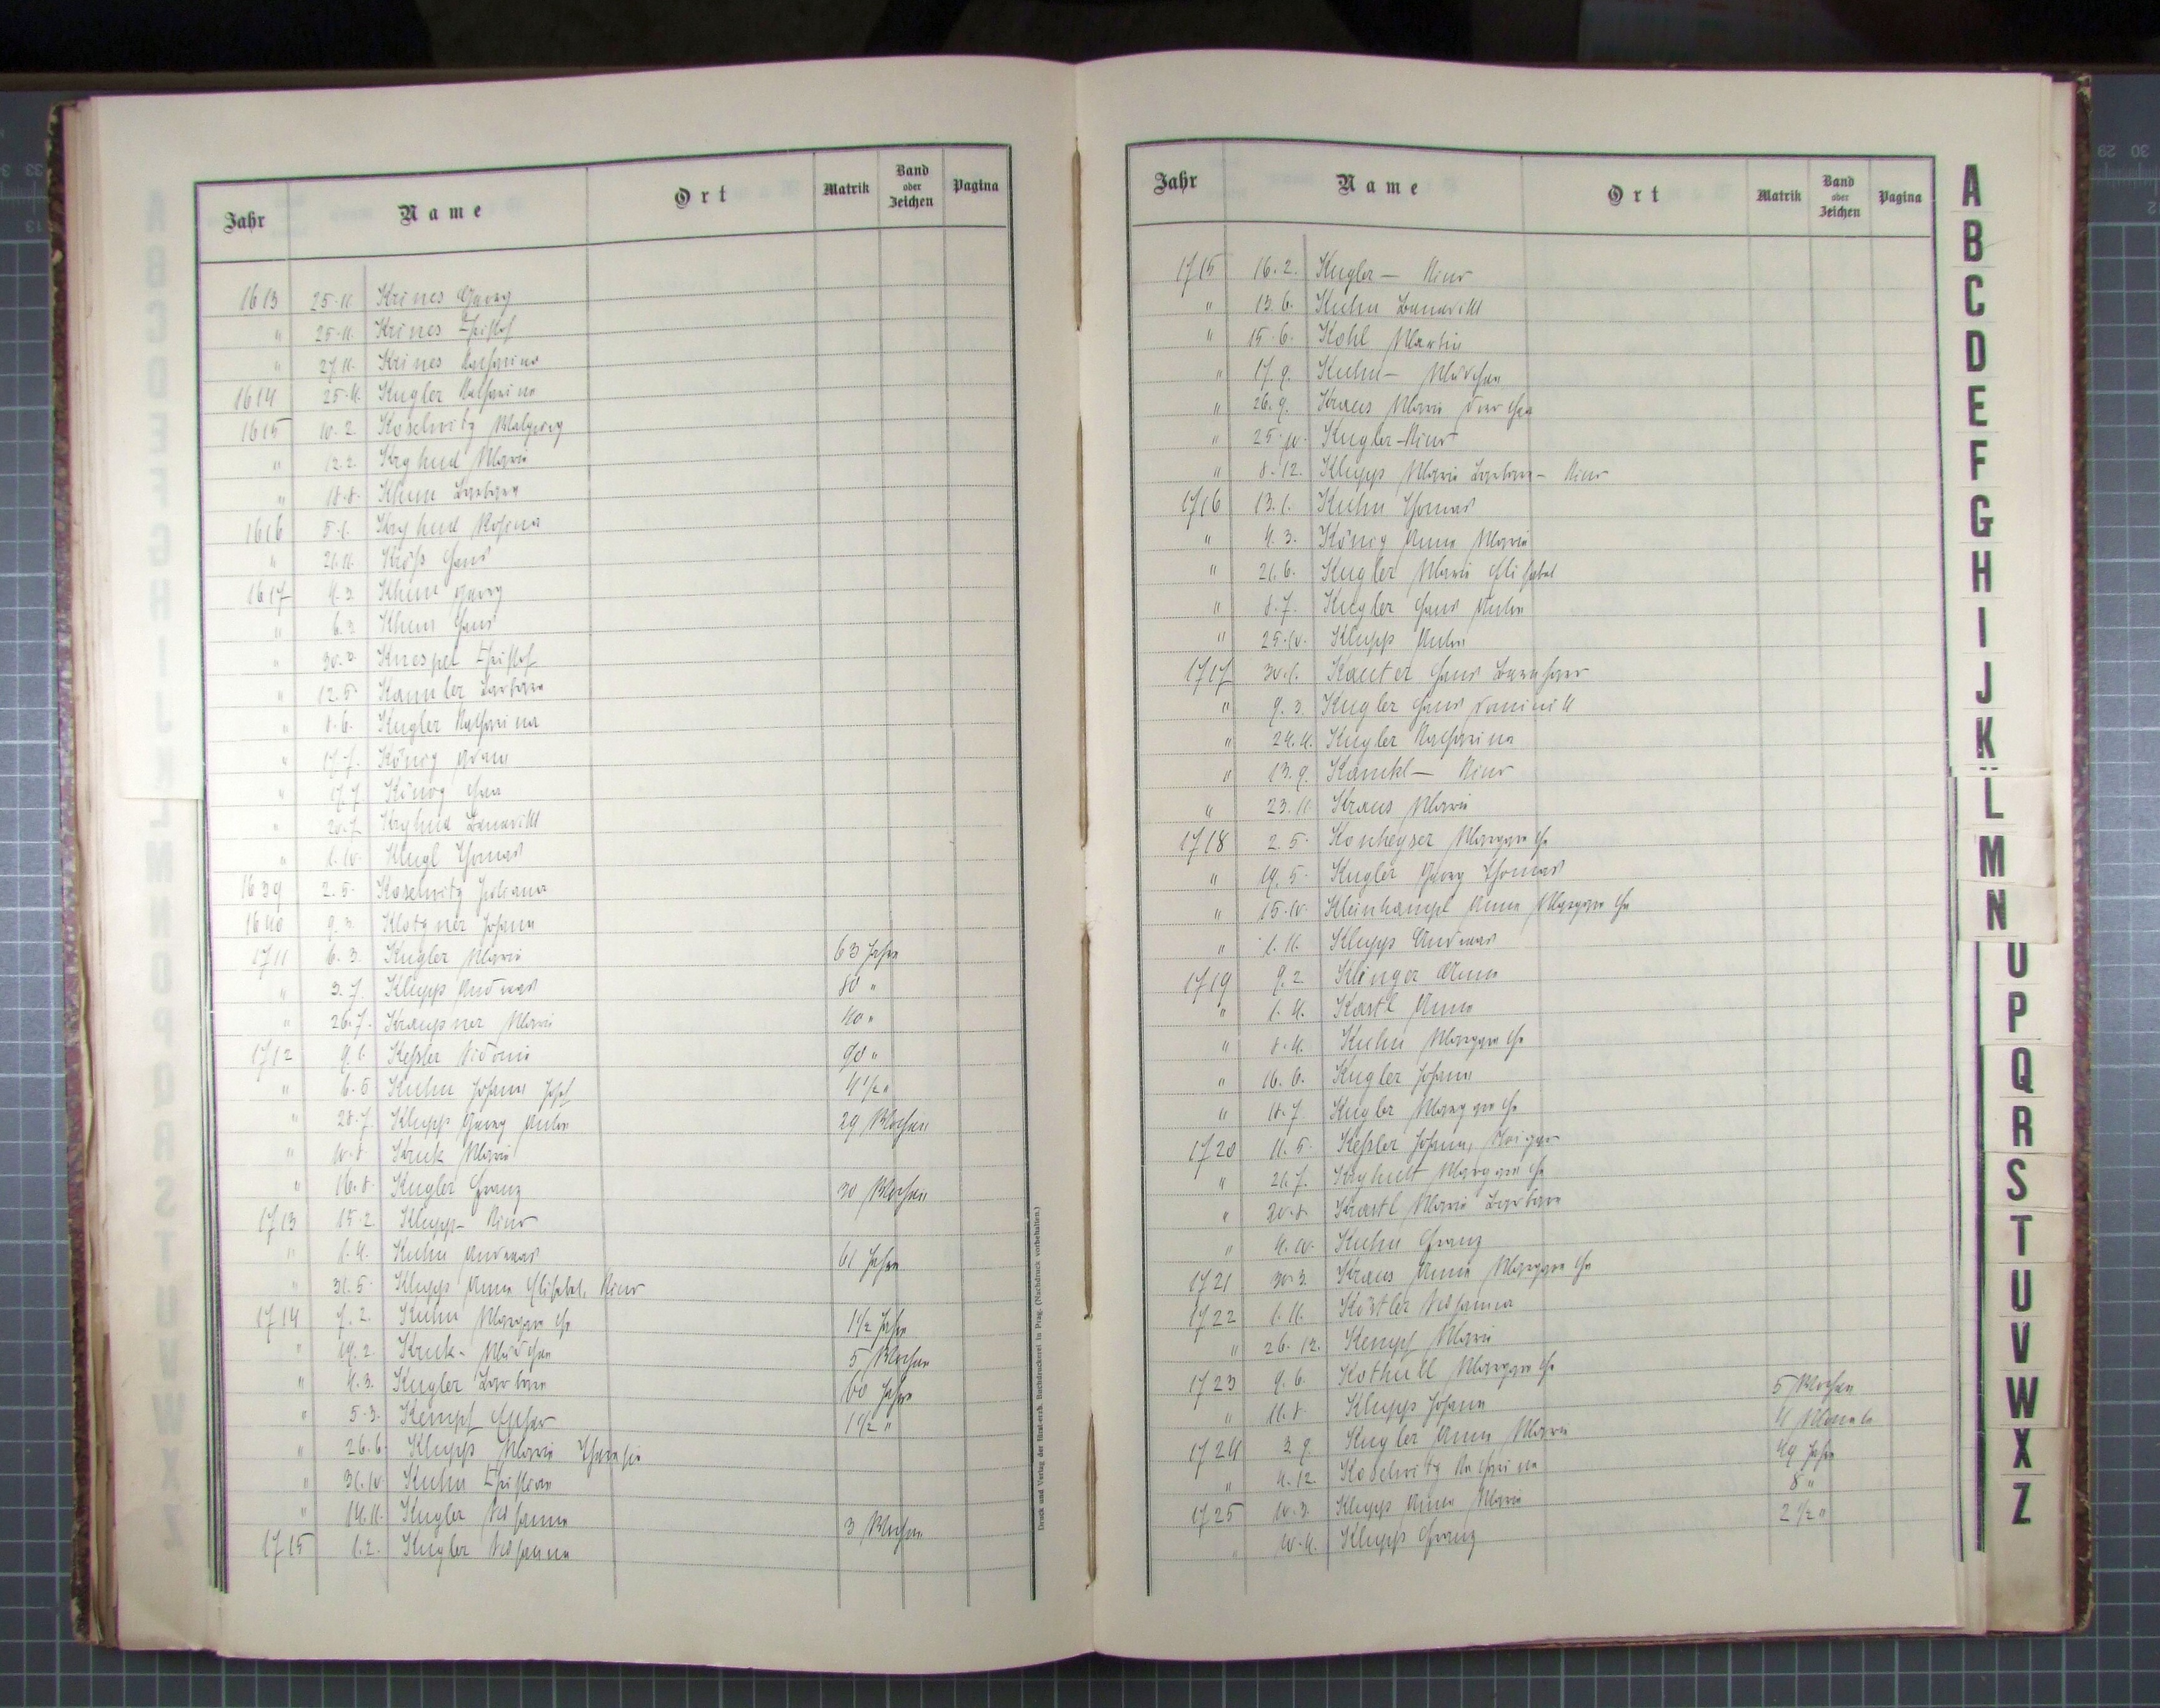 Jahr Name Ort Matrik Band oder Zeichen Pagina
1613 25.11. Krines Georg
" 25.11. Krines Christof
" 27.11. Krines Katharina
1614 25.4. Kugler Katharina
1615 10.2. Koselwitz
" 12.2. Maria
" 18.8. Khem Barbara
1616 5.1. Rosina
" 21.11. Kröß Hans
1617 4.3. Khem Georg
" 6.3. Khem Hans
" 30.3. Knespel Christof
" 12.5. Kannler Barbara
" 8.6. Kugler Katharina
" 17.7. König Adam
" 17.7. König Eva
" 20.7. Benedikt
" 1.10. Klugl Thomas
1639 2.5. Koselwitz Juliana
1640 9.3. Klotzner Johann
1711 6.3. Kugler Maria 63 Jahre
" 3.7. Klupp Andreas 80 "
" 26.7. Kraupner Maria 40 "
1712 9.1. Keßler Sidonia 90 "
" 6.5. Kuhn Johann Josef 4 1/2 "
" 28.7. Klupp Georg Anton 29 Wochen
" 10.8. Kruk Maria
" 16.8. Kugler Franz 30 Wochen
1713 15.2. Klupp- Kind
" 1.4. Kuhn Andreas 61 Jahre
" 31.5. Klupp Anna Elisabet, Kind
1714 7.2. Kuhn Margarethe 1 1/2 Jahre
" 19.2. Kruk- Mädchen 5 Wochen
" 4.3. Kugler Barbara 60 Jahre
" 5.3. Kempf Esther 1 1/2 "
" 26.6. Klupp Maria Theresia
" 31.10. Kuhn Christian
" 14.11. Kugler Susanna 3 Wochen
1715 1.2. Kugler Susanna
Druck und Verlag der fürst-erzb. Buchdruckerei in Prag. (Nachdruck vorbehalten.)
Jahr Name Ort Matrik Band oder Zeichen Pagina
1715 16.2. Kugler — Kind
" 13.6. Kuhn Benedikt
" 15.6. Kohl Martin
" 17.9. Kuhn — Mädchen
" 26.9. Kraus Maria Dorothea
" 25.10. Kugler-Kind
" 8.12. Klupp Maria Barbara - Kind
1716 13.1. Kuhn Thomas
" 4.3. König Anna Maria
" 21.6. Kugler Maria Elisabet
" 8.7. Kugler Hans Anton
" 25.10. Klupp Anton
1717 30.1. Kauter Hans Bernhard
" 9.3. Kugler Hans Dominik
" 24.4. Kugler Katharina
" 13.9. Kankl — Kind
" 23.11. Kraus Maria
1718 2.5. Margarethe
" 19.5. Kugler Georg Thomas
" 15.10. Kleinhampl Anna Margarethe
" 1.11. Klupp Andreas
1719 9.2. Klinger Anna
" 1.4. Kastl Anna
" 8.4. Kuhn Margarethe
" 16.6. Kugler Johann
" 18.7. Kugler Margarethe
1720 11.5. Keßler Johann,
" 21.7. Margarethe
" 30.8. Krastl Maria Barbara
" 4.10. Kuhn Franz
1721 30.3. Kraus Anna Margarethe
1722 1.11. Köstler Susanna
" 26.12. Kempf Maria
1723 9.6. Margarethe
" 11.8. Klupp Johann 5 Wochen
1724 3.9. Kugler Anna Maria 4 Monate
" 4.12. Koselwitz Katharina 49 Jahre
1725 10.3. Klupp Anna Maria 8 "
" 10.4. Klupp Franz 2 1/2 "
A
B
C
D
E
F
G
H
I
J
K
L
M
N
O
P
Q
R
S
T
U
V
W
X
Z